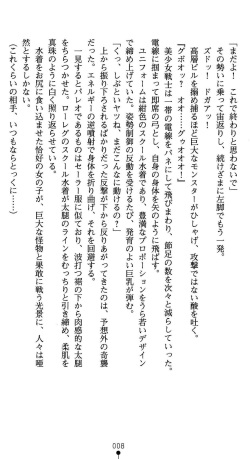 「まだよ！　これで終わりと思わないで」
その勢いに乗って宙返り、続けざまに左脚でもう一発。
ズドッ！　ドガアッ！
『グボオッ！　オオオオオオオーーッ！』
高層ビルを掴むほど巨大なモンスターがひしゃげ、攻撃ではない酸を吐く。
美少女戦士は一帯の電線をバネにして飛びまわり、節足の数を次々と減らしていった。
電線に掴まって即席の弓とし、自身の身体を矢のように飛ばす。
ユニフォームは紺色のスクール水着であり、豊満なプロポーションをうら若いデザイン
で締め上げていた。姿勢制御の反動を受けるたび、発育のよい巨乳が弾む。
「くっ、しぶといヤツね、まだこんなに動けるの？」
上から振り下ろされるばかりだった反撃が下から反りあがってきたのは、予想外の奇襲
だった。エネルギーの逆噴射で身体を折り曲げ、それを回避する。
一見するとパレオであるものはセーラー服に似ており、波打つ裾の下から肉感的な太腿
をちらつかせた。ローレグのスクール水着が太腿のラインをむっちりと引き締め、柔肌を
真珠のように白く照り返らせている。
水着をお尻に食い込ませた恰好の女の子が、巨大な怪物と果敢に戦う光景に、人々は唖
然とするしかない。
（これくらいの相手、いつもならとっくに……）
008